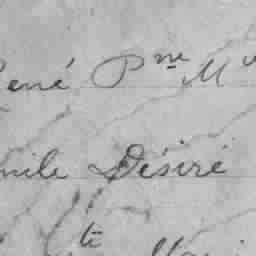 René Pne M
Emile Désiré
te